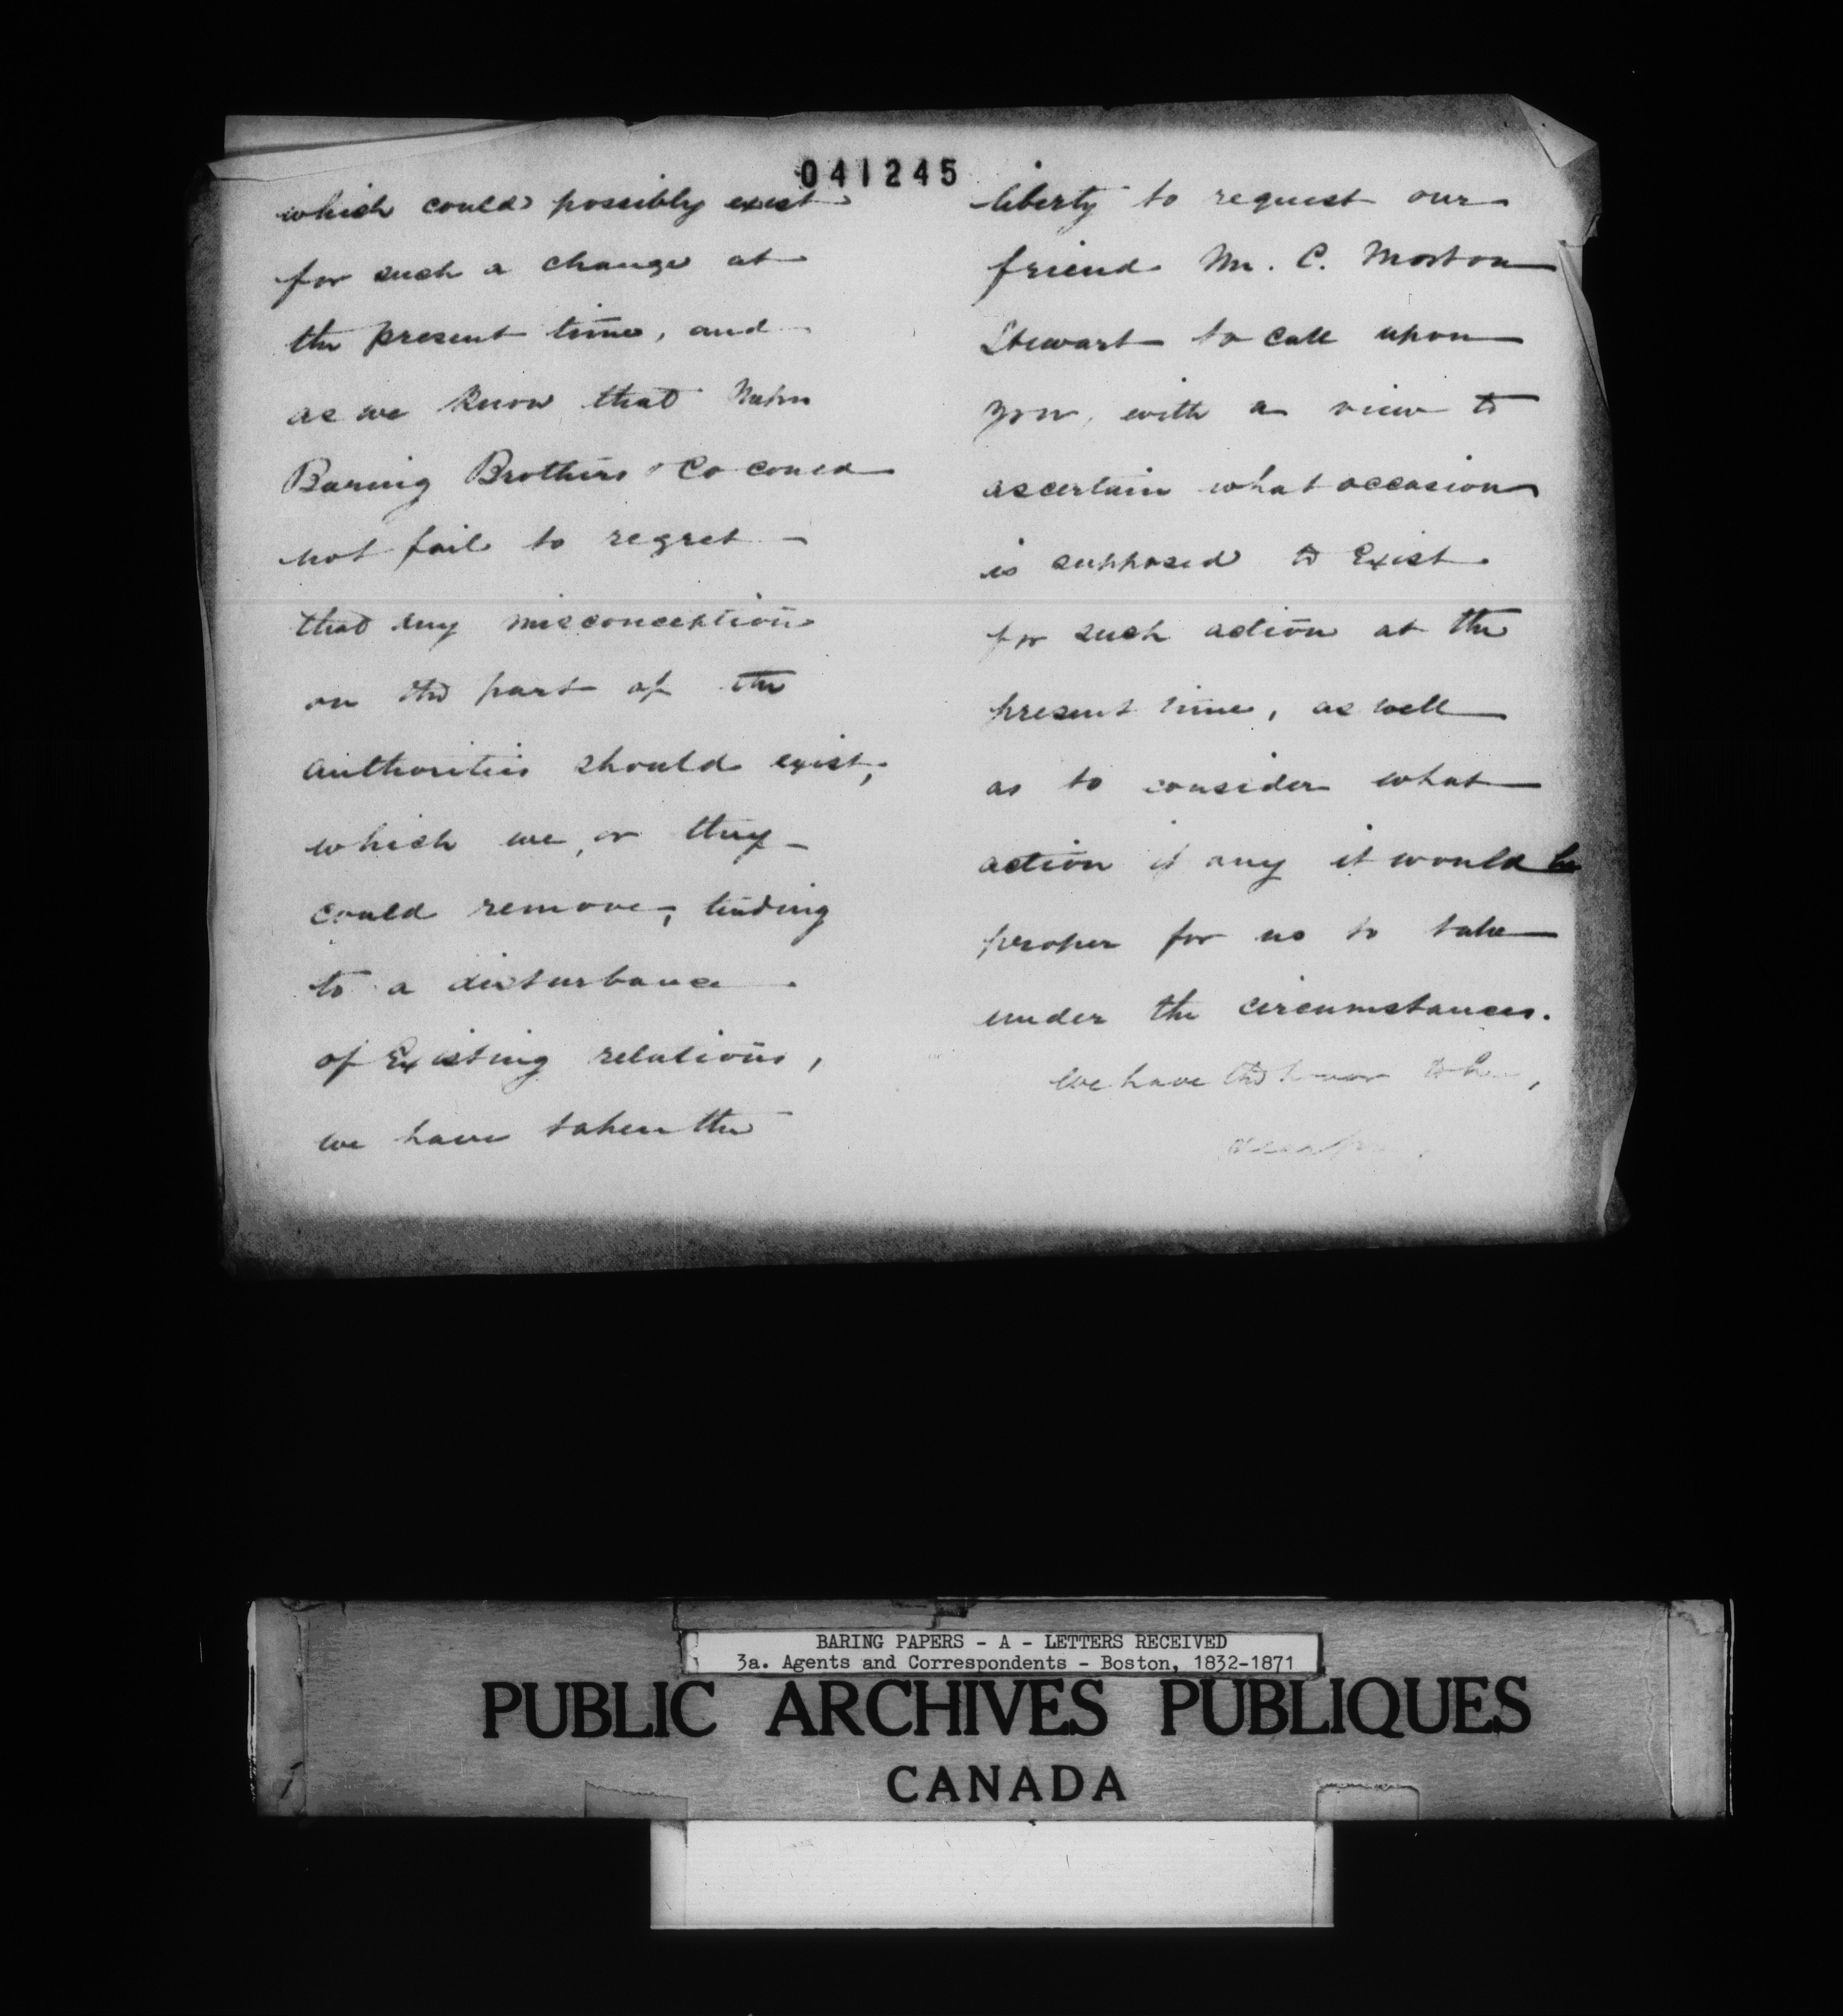 041245
which could possibly exist
for such a change at
the present time, and
as we know that Messrs
Baring Brothers & Co could
not fail to regret
that any misconception
on the part of the
authorities should exist,
which we, or they
could remove, tending
to a disturbance
of Existing relations,
we have taken the
liberty to request our
friend Mr. C. Morton
Stewart to call upon
you, with a view to
ascertain what occasion
is supposed to Exist
for such action at the
present time, as well
as to consider what
action if any it would be
proper for us to take
under the circumstances.
We have the honor to be,
BARING PAPERS - A - LETTERS RECEIVED
3a. Agents and Correspondents - Boston, 1832-1871
PUBLIC ARCHIVES PUBLIQUES
CANADA